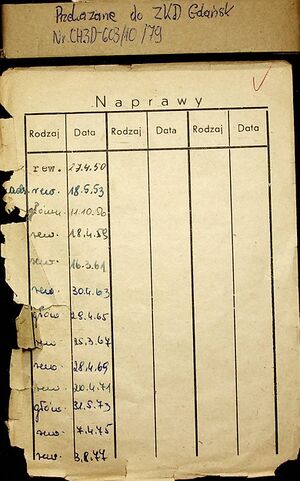 Przekazane do ZKD Gdańsk
Nr. CH3D-603/10/79
Naprawy
Rodzaj Data Rodzaj Data Rodzaj Data
rew. 27.4.50
rew. 18.5.53
główn. 11.10.56
rew. 18.4.59
rew. 16.3.61
rew. 30.4.63
głów. 29.4.65
rew. 25.3.67
rew. 28.4.69
rew. 20.4.71
głów. 31.5.73
rew. 7.4.75
rew. 3.8.77